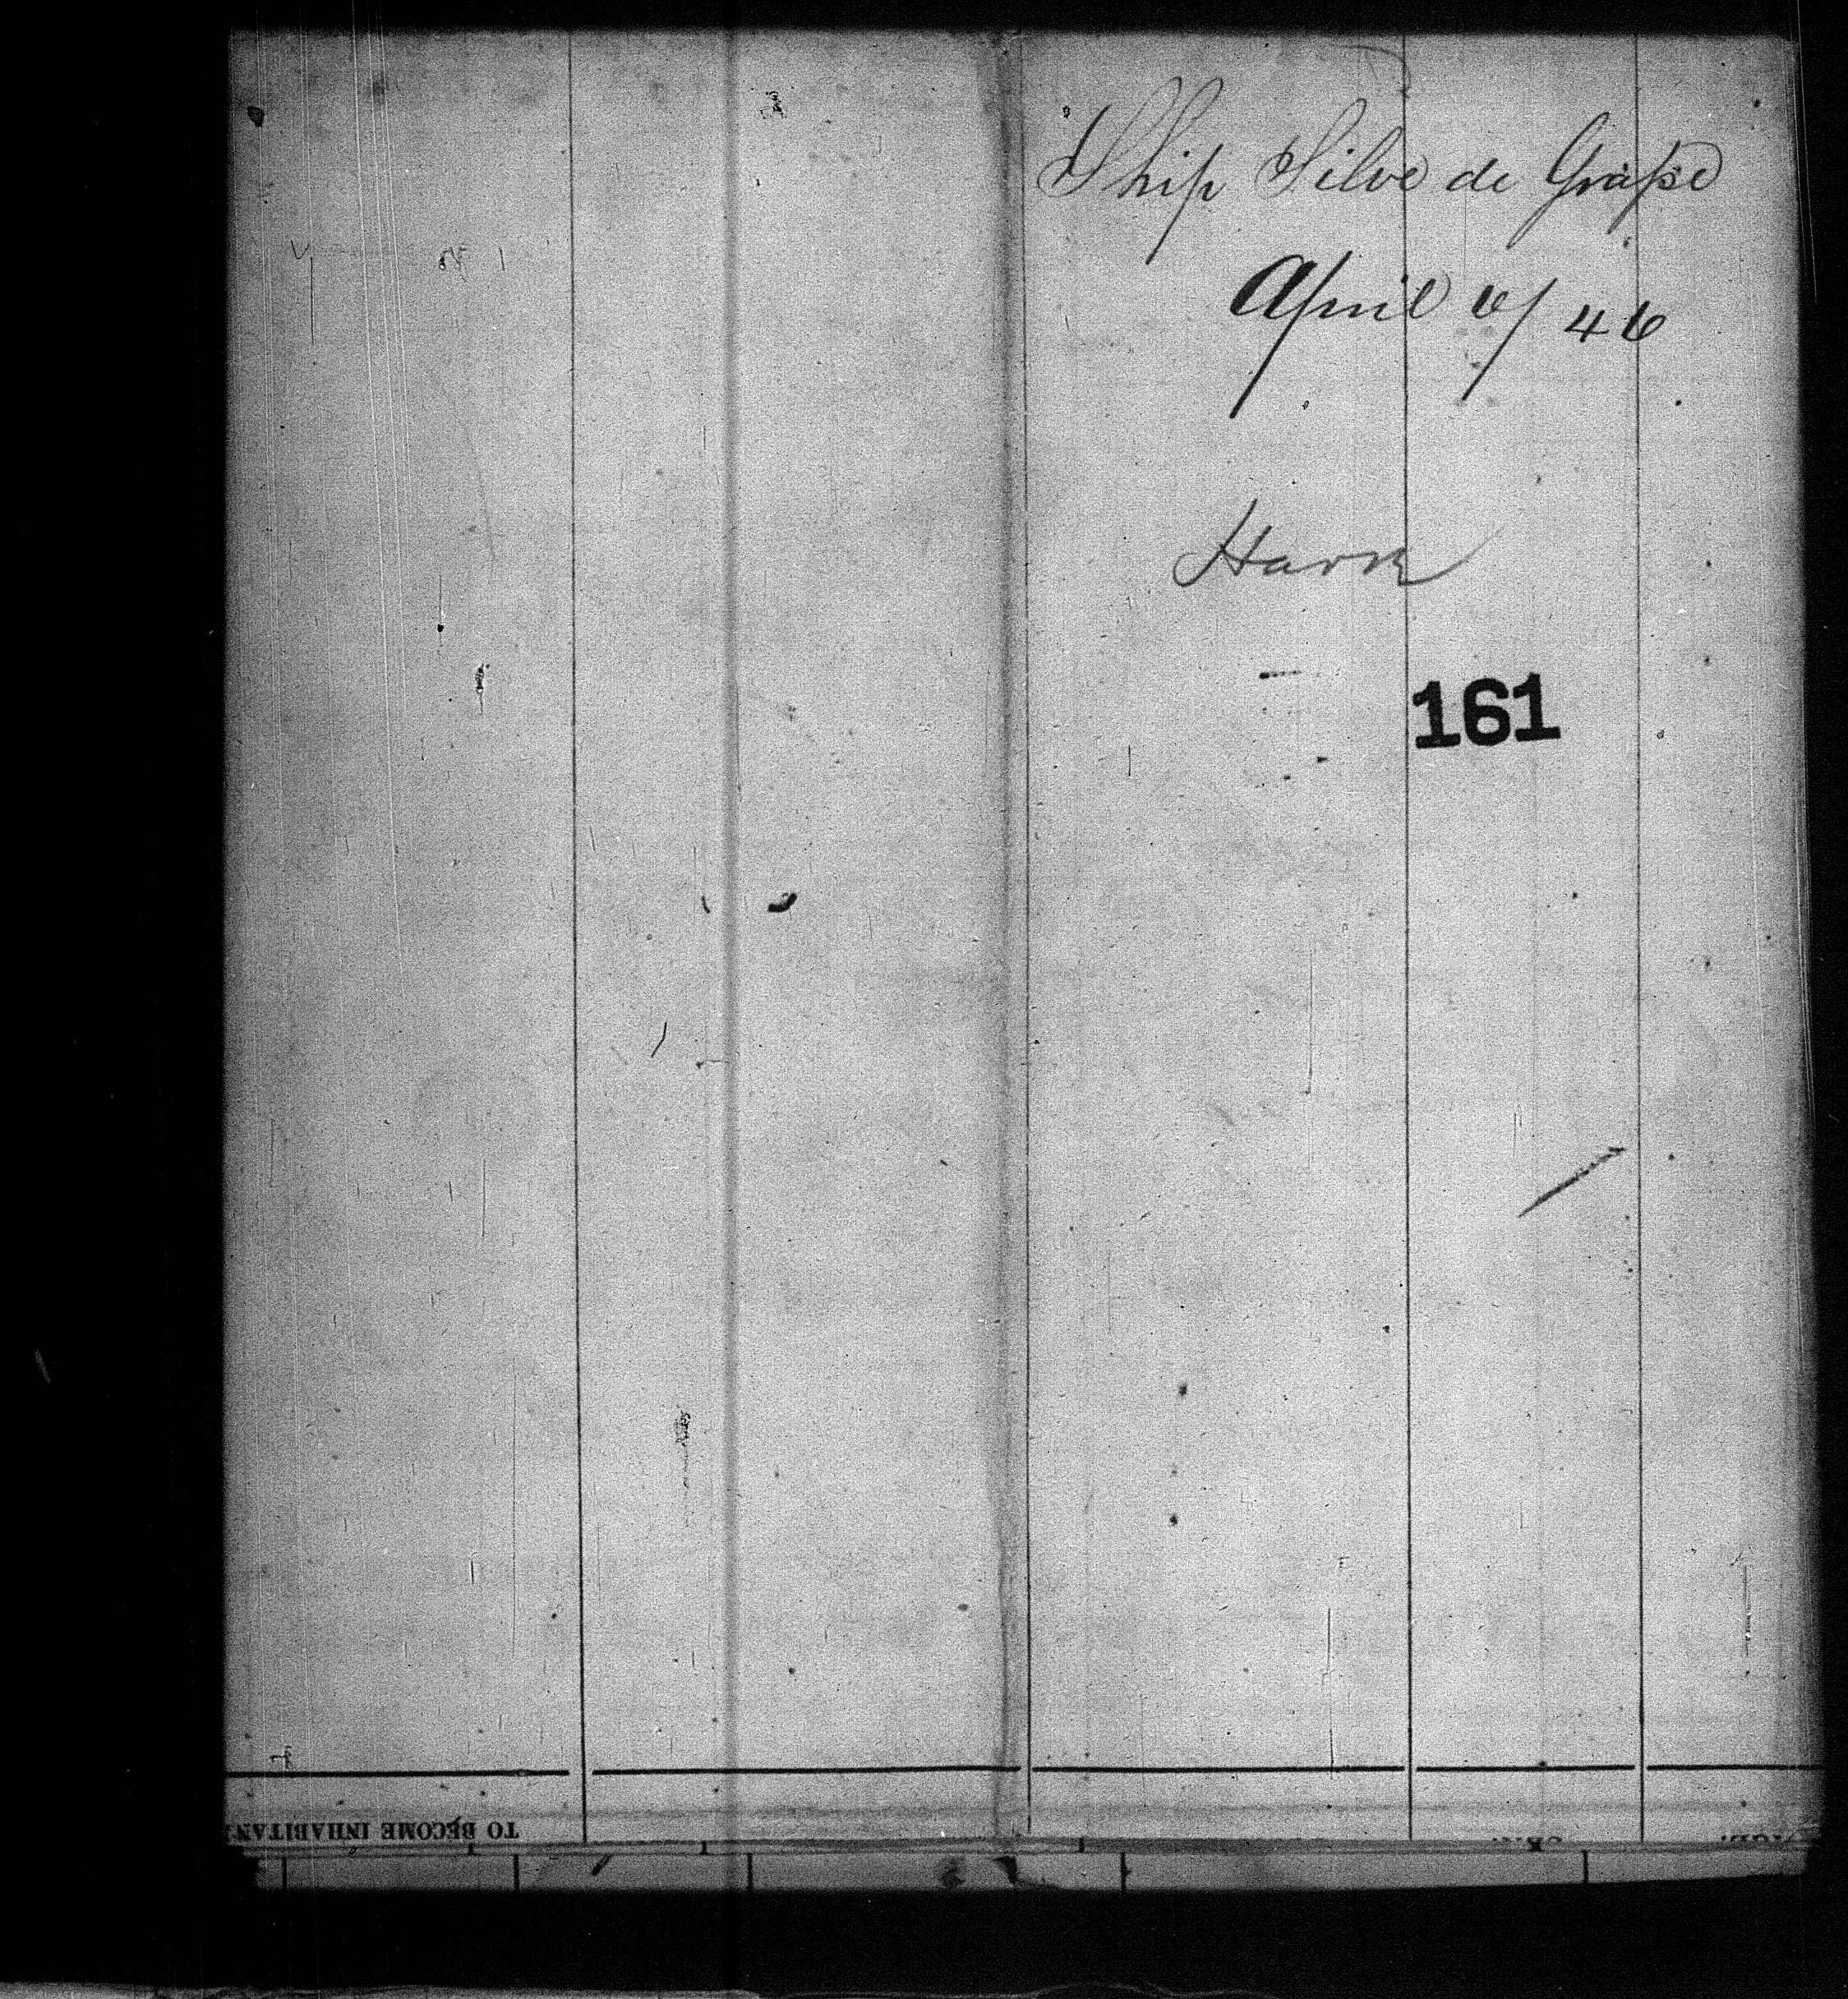 Ship Silve de Graſse
April 6/46
Havre
161
TO BECOME INHABITAN